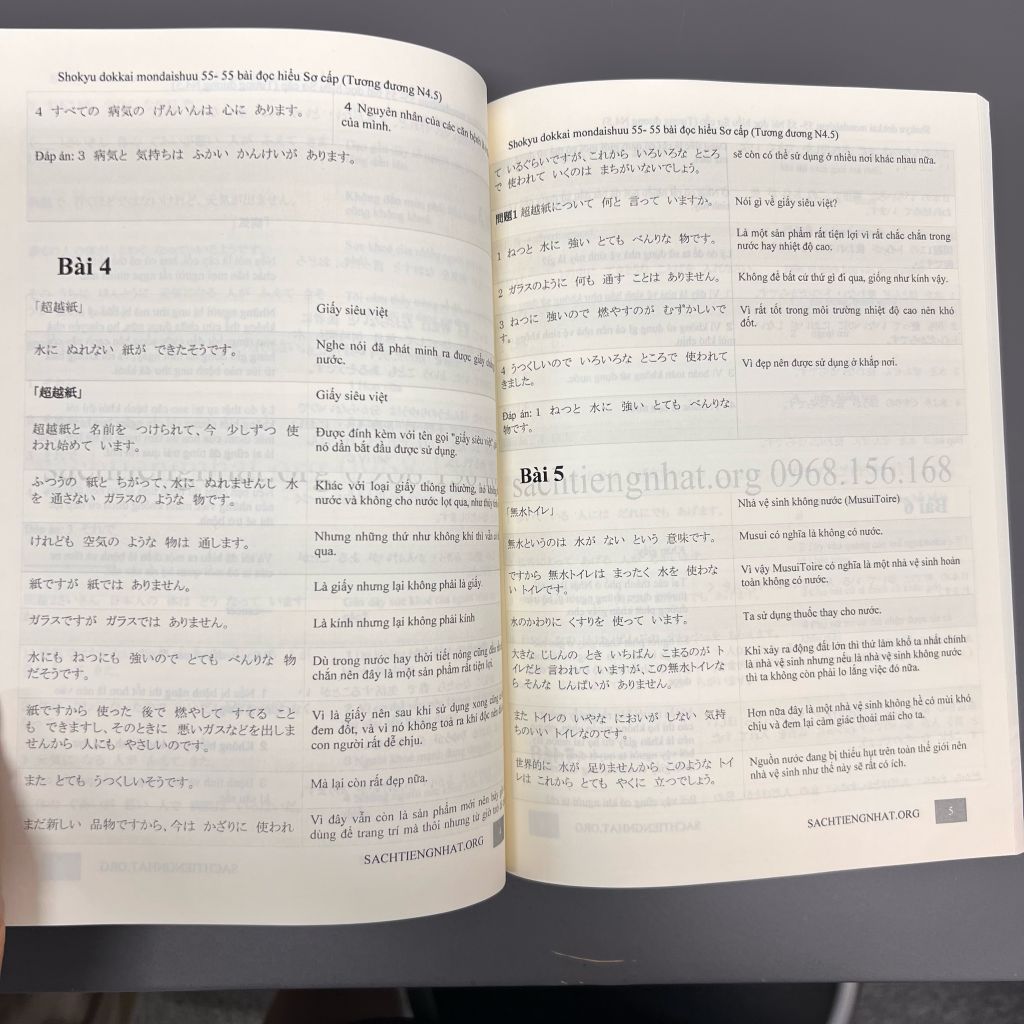 Shokyu dokkai mondaishuu 55- 55 bài đọc hiểu Sơ cấp (Tương đương N4.5)
4 すべての 病気の げんいんは 心に あります。
4 Nguyên nhân của các căn bệnh
của mình.
Đáp án: 3 病気と 気持ちは ふかい かんけいが あります。
Bài 4
「超越紙」
Giấy siêu việt
水に ぬれない 紙が できたそうです。
Nghe nói đã phát minh ra được giấy
nước.
「超越紙」
Giấy siêu việt
超越紙と 名前を つけられて、今 少しずつ 使
われ始めて います。
Được đính kèm với tên gọi "giấy siêu việt"
nó dần bắt đầu được sử dụng.
ふつうの 紙と ちがって、水に ぬれませんし 水
を 通さない ガラスの ような 物です。
Khác với loại giấy thông thường, nó
nước và không cho nước lọt qua, như
けれども 空気の ような 物は 通します。
Nhưng những thứ như không khí thì vẫn
qua.
紙ですが 紙では ありません。
Là giấy nhưng lại không phải là giấy.
ガラスですが ガラスでは ありません。
Là kính nhưng lại không phải kính
水にも ねつにも 強いので とても べんりな 物
だそうです。
Dù trong nước hay thời tiết nóng cũng đều
chắn nên đây là một sản phẩm rất tiện lợi.
紙ですから 使った 後で 燃やして すてる こと
も できますし、そのときに 悪いガスなどを出しま
せんから 人にも やさしいのです。
Vì là giấy nên sau khi sử dụng xong cũng
đem đốt, và vì nó không toả ra khí độc nên
con người rất dễ chịu.
また とても うつくしいそうです。
Mà lại còn rất đẹp nữa.
まだ新しい 品物ですから、今は かざりに 使われ
Vì đây vẫn còn là sản phẩm mới nên bây
dùng để trang trí mà thôi nhưng từ giờ trở
SACHTIENGNHAT.ORG
Shokyu dokkai mondaishuu 55- 55 bài đọc hiểu Sơ cấp (Tương đương N4.5)
て いるぐらいですが、これから いろいろな ところ
で 使われて いくのは まちがいないでしょう。
sẽ còn có thể sử dụng ở nhiều nơi khác nhau nữa.
問題1 超越紙について 何と 言って いますか。
Nói gì về giấy siêu việt?
1 ねつと 水に 強い とても べんりな 物です。
Là một sản phẩm rất tiện lợi vì rất chắc chắn trong
nước hay nhiệt độ cao.
2 ガラスのように 何も 通す ことは ありません。
Không để bất cứ thứ gì đi qua, giống như kính vậy.
3 ねつに 強いので 燃やすのが むずかしいで
す。
Vì rất tốt trong môi trường nhiệt độ cao nên khó
đốt.
4 うつくしいので いろいろな ところで 使われて
きました。
Vì đẹp nên được sử dụng ở khắp nơi.
Đáp án: 1 ねつと 水に 強い とても べんりな
物です。
sachtiengnhat.org 0968.156.168
Bài 5
「無水トイレ」
Nhà vệ sinh không nước (MusuiToire)
無水というのは 水が ない という 意味です。
Musui có nghĩa là không có nước.
ですから 無水トイレは まったく 水を 使わな
い トイレです。
Vì vậy MusuiToire có nghĩa là một nhà vệ sinh hoàn
toàn không có nước.
水のかわりに くすりを 使って います。
Ta sử dụng thuốc thay cho nước.
大きな じしんの とき いちばん こまるのが ト
イレだと 言われて いますが、この無水トイレな
ら そんな しんぱいが ありません。
Khi xảy ra động đất lớn thì thứ làm khổ ta nhất chính
là nhà vệ sinh nhưng nếu là nhà vệ sinh không nước
thì ta không còn phải lo lắng việc đó nữa.
また トイレの いやな においが しない 気持
ちのいい トイレなのです。
Hơn nữa đây là một nhà vệ sinh không hề có mùi khó
chịu và đem lại cảm giác thoải mái cho ta.
世界的に 水が 足りませんから このような トイ
レは これから とても やくに 立つでしょう。
Nguồn nước đang bị thiếu hụt trên toàn thế giới nên
nhà vệ sinh như thế này sẽ rất có ích.
SACHTIENGNHAT.ORG
5